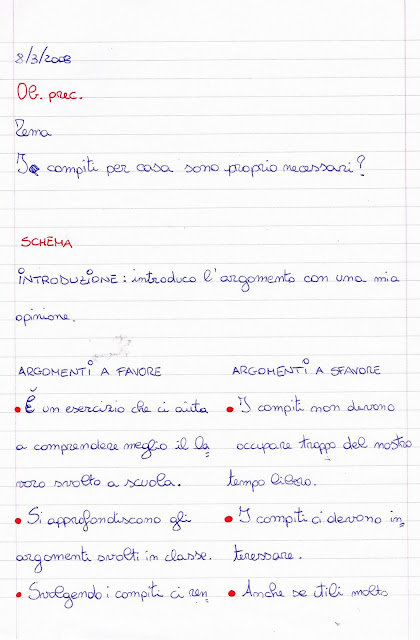 8/3/2008
Ob. prec.
Tema
I compiti per casa sono proprio necessari?
SCHEMA
INTRODUZIONE: introduco l'argomento con una mia
opinione.
ARGOMENTI A FAVORE
• È un esercizio che ci aiuta
a comprendere meglio il la=
voro svolto a scuola.
• Si approfondiscono gli
argomenti svolti in classe.
• Svolgendo i compiti ci ren=
ARGOMENTI A SFAVORE
• I compiti non devono
occupare troppo del nostro
tempo libero.
• I compiti ci devono in=
teressare.
• Anche se utili molto